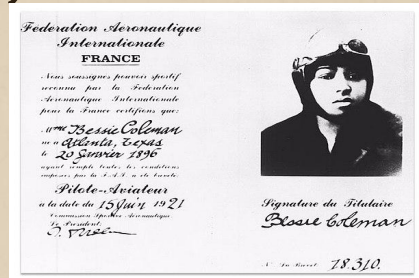 Federation Aeronautique
Internationale
FRANCE
Nous soussignes pouvoir sportif
reconnu par la Federation
Aeronautique Internationale
pour la France certifions que:
Mme Bessie Coleman
né a Atlanta, Texas
le 20 Janvier 1896
ayant rempli toutes les conditions
imposées par la F.A.I. a été breveté
Pilote-Aviateur
à la date du 15 Juin 1921
Commission Sportive Aeronautique
Le President:
Signature du Titulaire
Bessie Coleman
N° du Brevet 18.310.